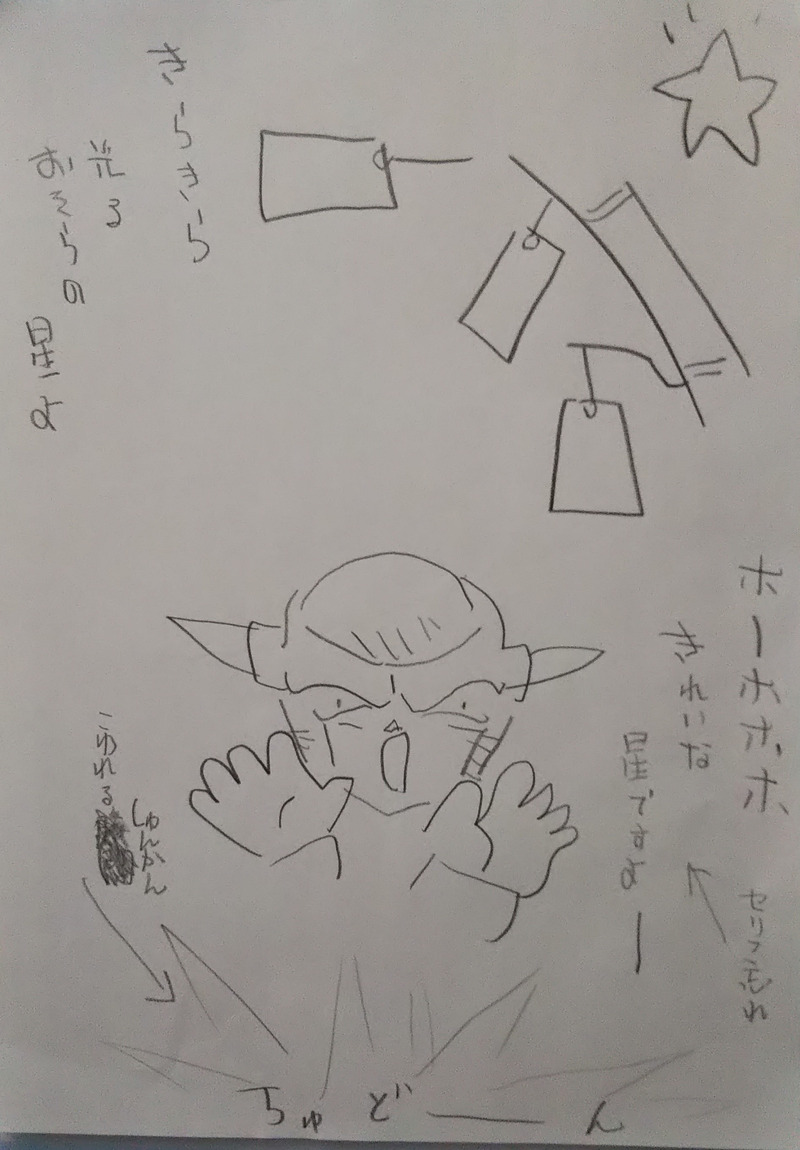 きらきら
光る
おそらの
星よ
ホーホホホ
きれいな
星ですよー
セリフ忘れ
こわれる
しゅんかん
ちゅどーん